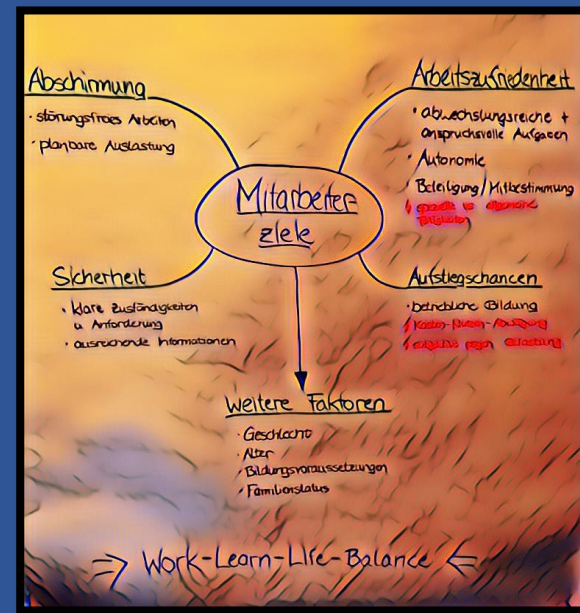 Abschirmung
· störungsfreies Arbeiten
· planbare Auslastung
Arbeitszufriedenheit
· abwechslungsreiche +
anspruchsvolle Aufgaben
· Autonomie
· Beteiligung/Mitbestimmung
Mitarbeiter
ziele
Sicherheit
· klare Zuständigkeiten
u Anforderung
· ausreichende Informationen
Aufstiegschancen
· betriebliche Bildung
Weitere Faktoren
· Geschlecht
· Alter
· Bildungsvoraussetzungen
· Familienstatus
=> Work-Learn-Life-Balance <=